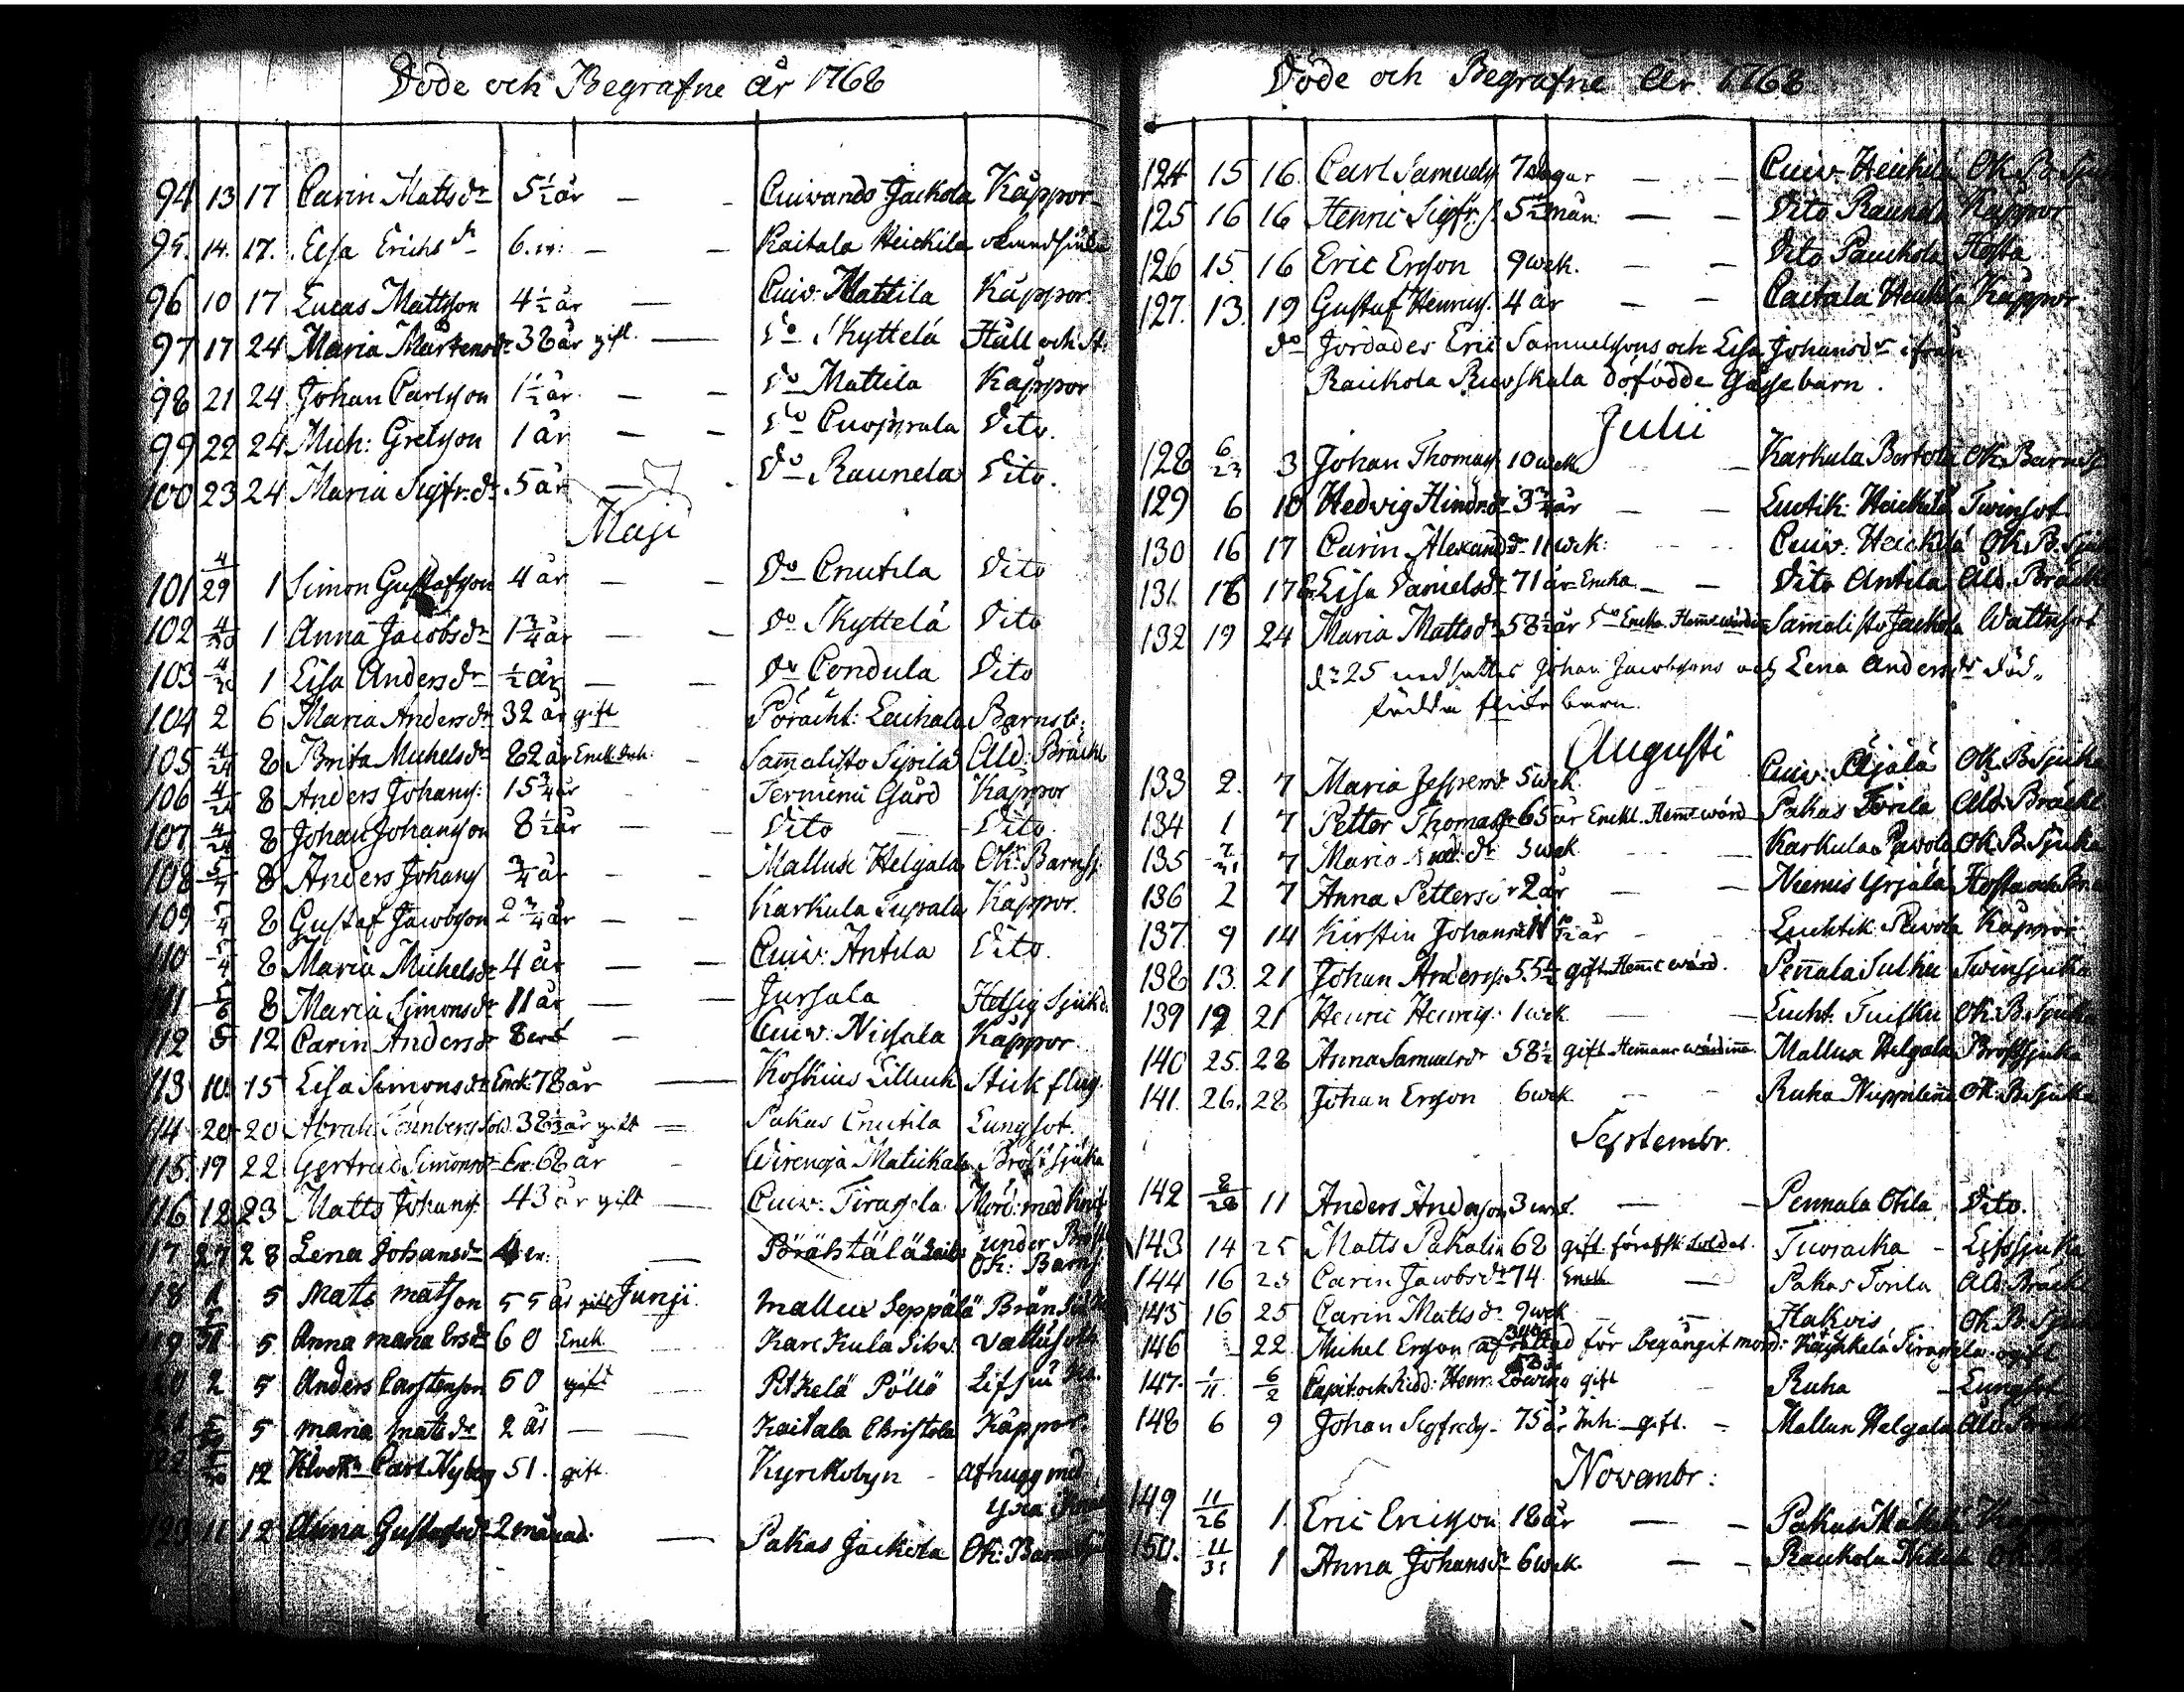 Döde och Begrafne år 1768
94 13 17 Carin Mattsdr 5½ år — - Cuivando Jackola Käppor
95. 14. 17. Elsa Erichsdr 6. — - Kaitala Heickila
96 10 17 Lucas Mattsson 4½ år — Cuiv: Mattila Käppor
97 17 24 Maria Mårtensdr 38 år gift. — Do Skyttelä Håll och St.
98 21 24 Johan Carlsson 1½ år — - Do Mattila Käppor
99 22 24 Mich: Grelsson 1 år — - Do Cuoppala Dito.
100 23 24 Maria Sigfr.dr 5 år — - Do Raunela Dito.
Maji
101 4/29 1 Simon Gustafsson 4 år — - Do Cnutila Dito
102 4/30 1 Anna Jacobsdr 1¾ år — - Do Skyttelä Dito
103 4/30 1 Lisa Andersdr ½ år — - Do Condula Dito
104 2 6 Maria Andersdr 32 år gift Porächt: Leuhala Barnsb:
105 4/24 8 Brita Michelsdr 82 år Enck. Inh: - Samalisto Sipilä Åld: Bräckl
106 4/24 8 Anders Johans: 15¾ år - Terninmi Gård Käppor
107 4/24 8 Johan Johansson 8½ år — - Dito — Dito.
108 5/4 8 Anders Johans ¾ år — - Mallusi Helgala Ok: Barnsj.
109 5/4 8 Gustaf Jacobsson 2¾ år — - Karkula Tupala Käppor.
110 5/4 8 Maria Michelsdr 4 år — — Cuiv: Antila Dito.
111 5/6 8 Maria Simonsdr 11 år — — Jursala Hetsig Sjukd.
112 5 12 Carin Andersdr 8 — Cuiv: Nissala Käppor
113 10. 15 Lisa Simonsdr Enck: 78 år — Koskius Lilluch Stick flug.
114 20 20 Abrah: Tennberg Sold. 38⅓ år gift = Pakas Cnutila Lungsot.
115. 19 22 Gertrud Simonsdr En: 68 år - Wirenoja Matickala Bröst sjuka
116 18 23 Matts Johans: 43 år gift — Cuiv: Tiragela Mörd: med knif
under Bröst
117 27 28 Lena Johansdr 4 — Pörähtälä Ok: Barnsj
Junji
118 1 5 Mats matson 55 år gift Mallux Seppälä Bränsjuk
119 5/31 5 Anna maria Ersdr 60 Enck Karckula Sihv. Vattusoth
120 2 5 Anders Carstenson 50 gift Pitkelä Pöllö Lifsiuka.
121 5 maria matsdr 2 år — Kaitala Christola Käppor
122 5/30 12 Klock: Carl Nyberg 51. gift. Kyrckobyn - afhugg med
yxa
123 11 12 Anna Gustafsdr 2 månad. — Pakas Jackola Ok: Barn
Döde och Begrafne år 1768
124 15 16. Carl Samuels 7 dagar — - Cuiv. Heickilä Ok. B. Sjuk
125 16 16 Henric Sigfr:s. 5½ mån: — - Dito Raunela Käppor
126 15. 16 Eric Ersson 9 wek. — - Dito Pauckola Hosta
127. 13. 19 Gustaf Henrics. 4 år — - Caitala Heickilä Käppor
do Jordades Eric Samuelssons och Lisa Johansdr ifrån
Rauckola Ruoskala dödfödde Gåssebarn.
Julii
128 6/23 3 Johan Thomas: 10 wek — Karkula Bertola Ok. Barnsj
129 6 10 Hedvig Hindr:dr 3¾ år — - Luctik: Heickilä Twinsot
130 16 17 Carin Alexand:dr 11 wek: Cuiv: Heickilä Ok. B. Sjuk
131. 16 17 Lisa Danielsdr 71 år Encka — - Dito Antila Åld. Bräckl
132 19 24 Maria Mattsdr 58½ år Do Encka. Hem:swärdin Samalisto Jackola Wattusot
d: 25 nedsattes Johan Jacobssons och Lena Andersdr död-
födda barn.
Augusti
133 2. 7 Maria Jespersdr 5 wek. Cuiv: Äijälä Ok. B. Sjuka
134 1 7 Petter Thomass 65 år Enckl. Hem:swärd Pakas Torila Åld. Bräckl
135 7/31 7 Maria dr 5 wek - Karkula Pavola Ok. B. Sjuka
136 2 7 Anna Pettersdr 2 år — - Niemis Yrjälä Hosta och
137. 9 14 Kirstin Johansdr år - Luchtik. Pavola Käppor
138 13. 21 Johan Anderss. 55½ gift Hem:swärd. Pennala Sulku Twinsjuka
139 19 21 Henric Henrics. 1 wek — Lucht: Tuisku Ok. B. Sjuka
140 25. 28 Anna Samuelsdr 58½ gift Hemans wärdinna. Mallux Helgala Bröstsjuka
141. 26. 28 Johan Ersson 6 wek - - Ruha Nuppulinn Ok. B. Sjuka
Septembr.
142 8/28 11 Anders Andersson 3 — - Pennala Okila Dito.
143 14 25 Matts Pakalin 68 gift föraffsk: Soldat. Tuoracka - Lifssjuka
144 16 25 Carin Jacobsdr 74 Enck — Pakas Torila Åld. Bräckl
145 16 25 Carin Mattsdr 9 wek — Hakois Ok. B. Sjuk
146 - 22. Michel Ersson afrättad för Begångit mord: Tiragela ogift
147. 1/11. 6/2 Capit. och Ridd: Henr: gift - Ruha - Lungsot
148 6 9 Johan Sigfreds. 75 år Inh: gift. - Mallux Helgala Åld. Bräckl
Novembr:
149 11/26 1. Eric Ericsson 18 år — - Pakas Käppor
150. 11/31 1 Anna Johansdr 6 wek. — - Rauckola Ok. B.